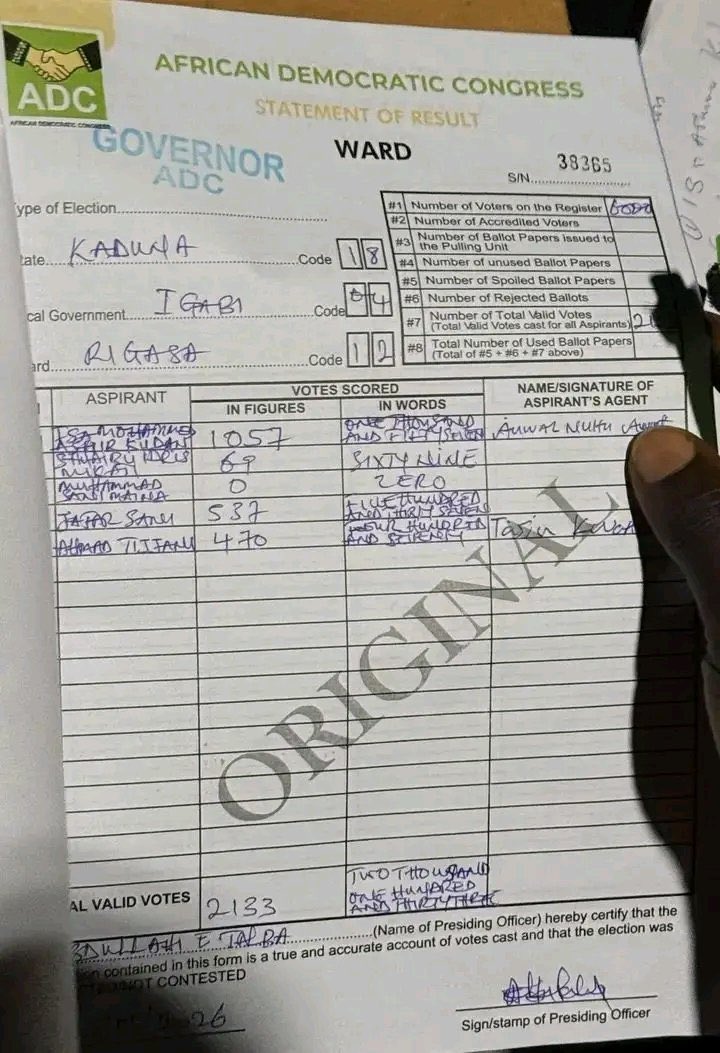 ADC
AFRICAN DEMOCRATIC CONGRESS
AFRICAN DEMOCRATIC CONGRESS
STATEMENT OF RESULT
GOVERNOR
ADC
WARD
S/N 38365
ype of Election
tate KADUNA Code 18
cal Government IGABI Code 04
ard RIGASA Code 12
#1 Number of Voters on the Register
#2 Number of Accredited Voters
#3 Number of Ballot Papers issued to the Pulling Unit
#4 Number of unused Ballot Papers
#5 Number of Spoiled Ballot Papers
#6 Number of Rejected Ballots
#7 Number of Total Valid Votes (Total Valid Votes cast for all Aspirants)
#8 Total Number of Used Ballot Papers (Total of #5 + #6 + #7 above)
ASPIRANT VOTES SCORED NAME/SIGNATURE OF ASPIRANT'S AGENT
IN FIGURES IN WORDS
ISA MOHAMMED ASHIR KUDAN 1057 ONE THOUSAND AND FIFTY SEVEN AUWAL NUHU
IDRIS 69 SIXTY NINE
MUHAMMAD SANI MAINA 0 ZERO
JAFAR SANI 537 FIVE HUNDRED AND THIRTY SEVEN
AHMAD TIJJANI 470 FOUR HUNDRED AND SEVENTY
ORIGINAL
AL VALID VOTES 2133 TWO THOUSAND ONE HUNDRED AND THIRTY THREE
BDULLAHI E TALBA (Name of Presiding Officer) hereby certify that the
on contained in this form is a true and accurate account of votes cast and that the election was
NOT CONTESTED
26
Sign/stamp of Presiding Officer